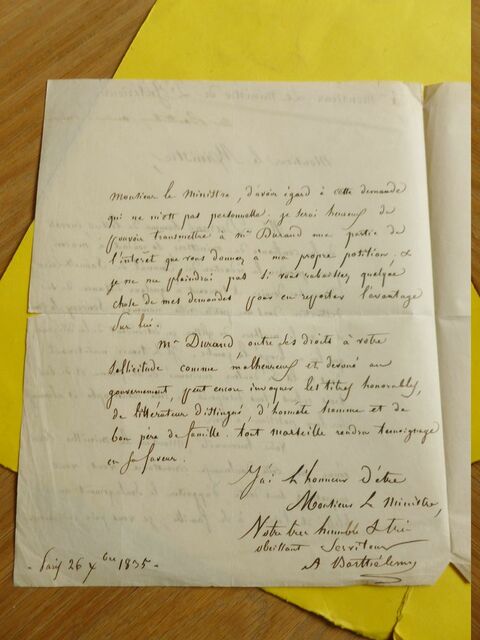 Monsieur le Ministre, d'avoir égard à cette demande
qui ne m'est pas personnelle, je serai heureux de
pouvoir transmettre à Mr Durand une partie de
l'intérêt que vous donnez à ma propre position, &
je ne me plaindrai pas si vous rabaissez quelque
chose de mes demandes pour en reporter l'avantage
sur lui.
Mr Durand outre ses droits à votre
sollicitude comme malheureux et dévoué au
gouvernement, peut encore invoquer les titres honorables,
de littérateur distingué, d'honnête homme et de
bon père de famille. tout marseille rendra temoignage
en sa faveur.
J'ai l'honneur d'être
Monsieur le Ministre,
Votre très humble & très
obéissant Serviteur
A Barthélemy
Paris 26 Xbre 1835